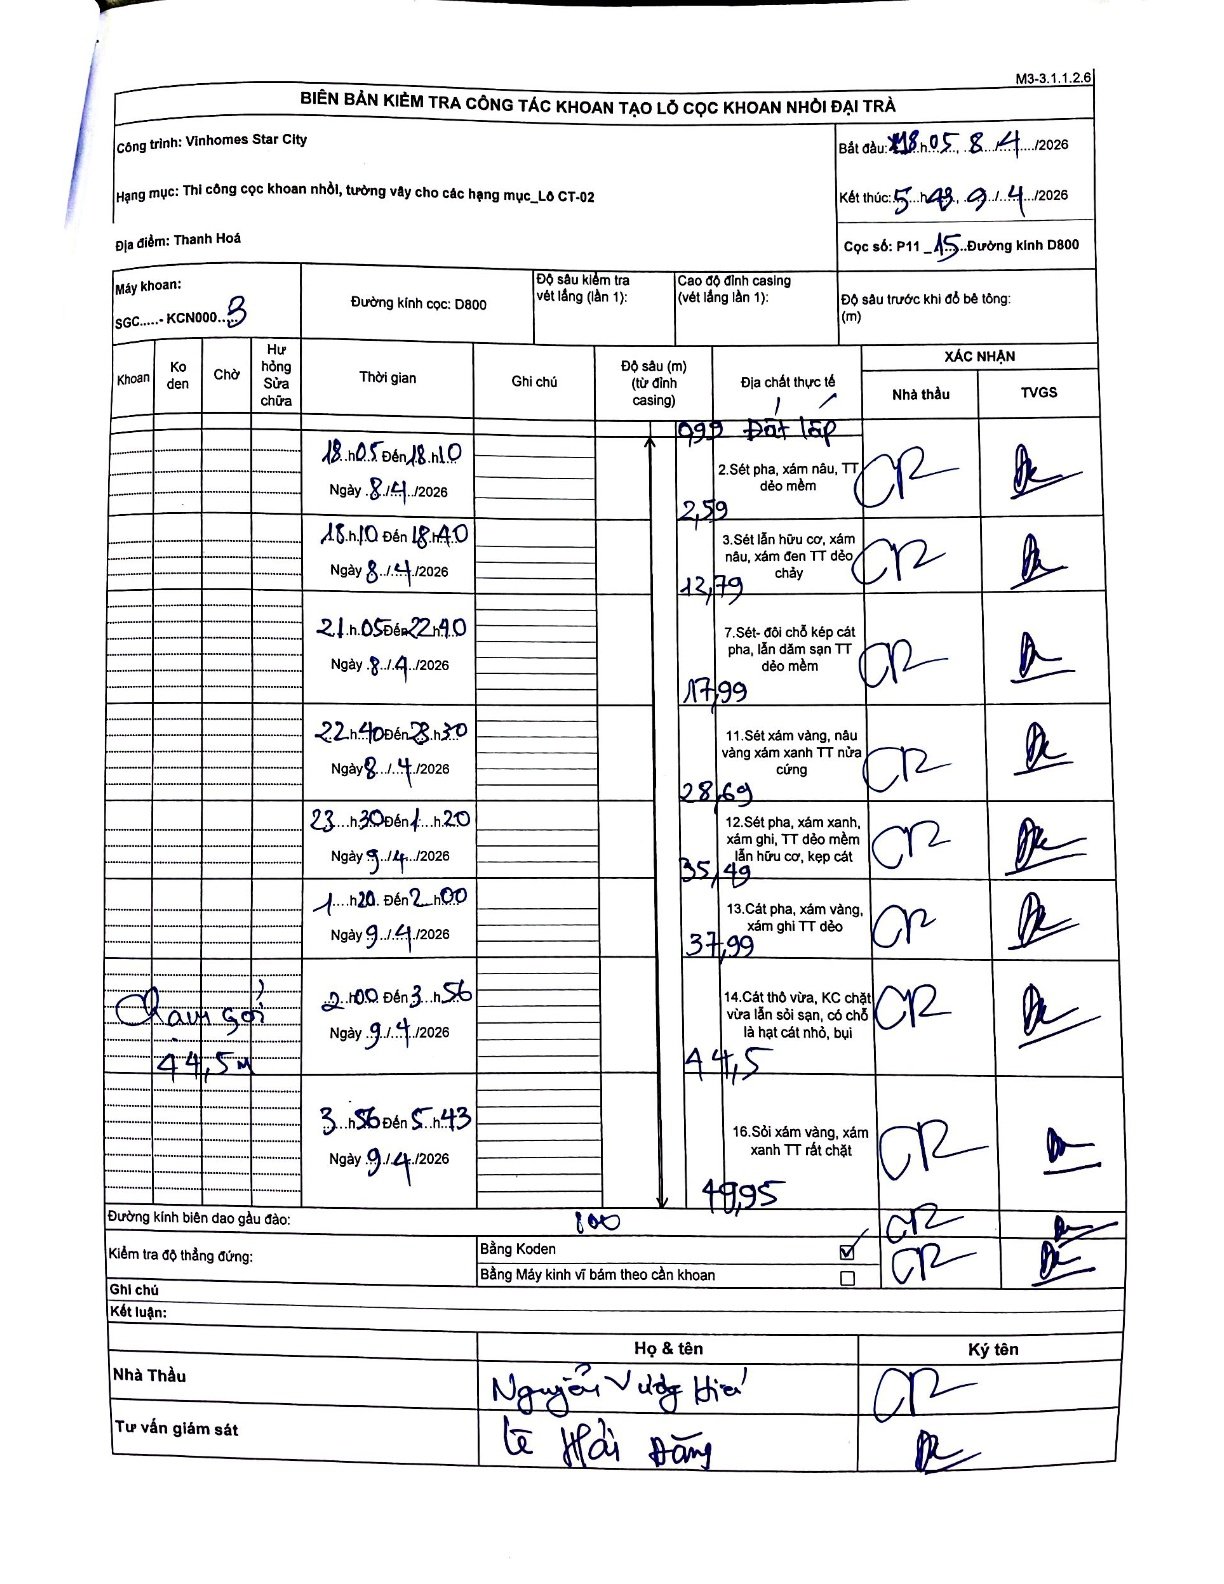 M3-3.1.1.2.6
BIÊN BẢN KIỂM TRA CÔNG TÁC KHOAN TẠO LỖ CỌC KHOAN NHỒI ĐẠI TRÀ
Công trình: Vinhomes Star City
Bắt đầu: 18.h.05, 8/4/2026
Hạng mục: Thi công cọc khoan nhồi, tường vây cho các hạng mục_Lô CT-02
Kết thúc: 5 h 43, 9/4/2026
Địa điểm: Thanh Hoá
Cọc số: P11_15 Đường kính D800
Máy khoan:
SGC.....- KCN000..3
Đường kính cọc: D800
Độ sâu kiểm tra vét lắng (lần 1):
Cao độ đỉnh casing (vét lắng lần 1):
Độ sâu trước khi đổ bê tông: (m)
Khoan Ko den Chờ Hư hỏng Sửa chữa Thời gian Ghi chú Độ sâu (m) (từ đỉnh casing) Địa chất thực tế XÁC NHẬN
Nhà thầu TVGS
0,99 Đất lấp
18.h05 Đến 18.h10
Ngày 8/4/2026
2.Sét pha, xám nâu, TT dẻo mềm
2,59
18.h.10 Đến 18.h40
Ngày 8/4/2026
3.Sét lẫn hữu cơ, xám nâu, xám đen TT dẻo chảy
12,79
21.h.05 Đến 22h40
Ngày 8/4/2026
7.Sét- đôi chỗ kép cát pha, lẫn dăm sạn TT dẻo mềm
17,99
22.h40 Đến 23.h30
Ngày 8/4/2026
11.Sét xám vàng, nâu vàng xám xanh TT nửa cứng
28,69
23...h30 Đến 1...h20
Ngày 9/4/2026
12.Sét pha, xám xanh, xám ghi, TT dẻo mềm lẫn hữu cơ, kẹp cát
35,49
1....h20. Đến 2.h00
Ngày 9/4/2026
13.Cát pha, xám vàng, xám ghi TT dẻo
37,99
Chạm sỏi
44,5m
2..h00 Đến 3...h56
Ngày 9/4/2026
14.Cát thô vừa, KC chặt vừa lẫn sỏi sạn, có chỗ là hạt cát nhỏ, bụi
44,5
3...h56 Đến 5..h43
Ngày 9/4/2026
16.Sỏi xám vàng, xám xanh TT rất chặt
49,95
Đường kính biên dao gầu đào: 800
Kiểm tra độ thẳng đứng:
Bằng Koden ☑
Bằng Máy kinh vĩ bám theo cần khoan ☐
Ghi chú
Kết luận:
Họ & tên Ký tên
Nhà Thầu
Nguyễn Vương Hiếu
Tư vấn giám sát
Lê Hải Đăng